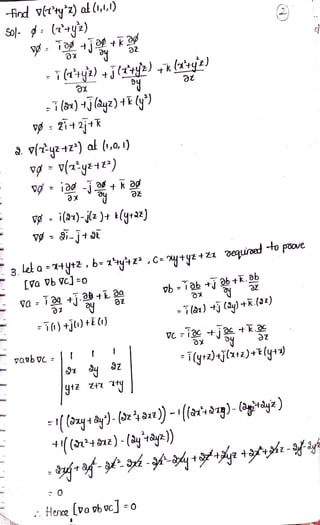 ②
-find ∇(x²+y²z) at (1,1,1)
Sol- ø = (x²+y²z)
∇ø = i ∂ø/∂x + j ∂ø/∂y + k ∂ø/∂z
= i (x²+y²z)/∂x + j (x²+y²z)/∂y + k (x²+y²z)/∂z
= i (2x) + j (2yz) + k (y²)
∇ø = 2i + 2j + k
2. ∇(x²-yz+z²) at (1,0,1)
∇ø = ∇(x²-yz+z²)
∇ø = i ∂ø/∂x - j ∂ø/∂y + k ∂ø/∂z
∇ø = i(2x) - j(z) + k(y+2z)
∇ø = 2i - j + 2k
3. Let a = x+y+z, b = x²+y²+z², c = xy+yz+zx required to prove
[∇a ∇b ∇c] = 0
∇a = i ∂a/∂x + j ∂a/∂y + k ∂a/∂z
= i(1) + j(1) + k(1)
∇b = i ∂b/∂x + j ∂b/∂y + k ∂b/∂z
= i(2x) + j(2y) + k(2z)
∇c = i ∂c/∂x + j ∂c/∂y + k ∂c/∂z
= i(y+z) + j(x+z) + k(y+x)
∇a ∇b ∇c = | 1 1 1
2x 2y 2z
y+z z+x x+y |
= 1((2xy+2y²) - (2z²+2xz)) - 1((2x²+2xy) - (2yz))
+1((2x²+2xz) - (2y²+2yz))
= 0
∴ Hence [∇a ∇b ∇c] = 0